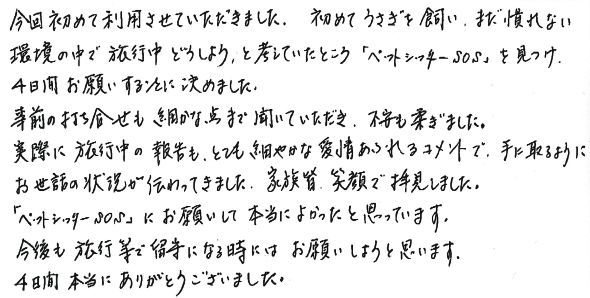 今回初めて利用させていただきました。 初めてうさぎを飼い、まだ慣れない
環境の中で 旅行中 どうしよう、と考えていたところ 「ペットシッターSOS」を見つけ、
4日間 お願いすることに決めました。
事前の打ち合せも 細かな点まで聞いていただき、不安も柔ぎました。
実際に 旅行中の 報告も、とても細やかな愛情あふれるコメントで、手に取るように
お世話の状況が伝わってきました。家族皆 笑顔で拝見しました。
「ペットシッターSOS」にお願いして 本当によかったと思っています。
今後も 旅行等で留守になる時には お願いしようと思います。
4日間 本当にありがとうございました。